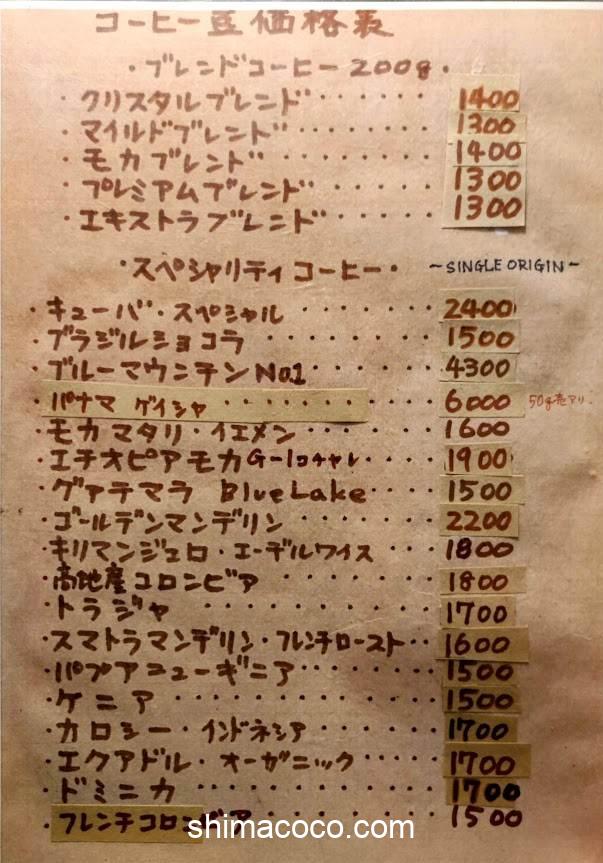 コーヒー豆価格表
・ブレンドコーヒー200g・
・クリスタルブレンド・・・・・・・1400
・マイルドブレンド・・・・・・・・1300
・モカブレンド・・・・・・・・・1400
・プレミアムブレンド・・・・・・・1300
・エキストラブレンド・・・・・・1300
・スペシャリティコーヒー・ ~SINGLE ORIGIN~
・キューバ・スペシャル・・・・・・・2400
・ブラジルショコラ・・・・・・・・・1500
・ブルーマウンテンNo.1・・・・・・4300
・パナマ ゲイシャ・・・・・・・・・6000 50g売アリ
・モカマタリ・イエメン・・・・・・1600
・エチオピアモカG-1コチャレ・・・・1900
・グァテマラ BlueLake・・・・1500
・ゴールデンマンデリン・・・・・・2200
・キリマンジェロ・エーデルワイス・・・1800
・高地産コロンビア・・・・・・・1800
・トラジャ・・・・・・・・・・・1700
・スマトラマンデリン・フレンチロースト・・1600
・パプアニューギニア・・・・・・・1500
・ケニア・・・・・・・・・・・・1500
・カロシー・インドネシア・・・・・・1700
・エクアドル・オーガニック・・・・・1700
・ドミニカ・・・・・・・・・・・・1700
・フレンチコロンビア 1500
shimacoco.com